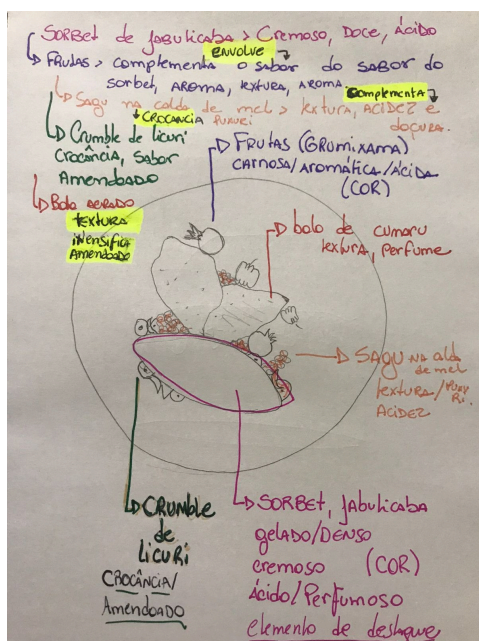 SORBET de JABUTICABA > Cremoso, Doce, Ácido
ENVOLVE
FRUTAS > complementa o sabor do SABOR do
sorbet, AROMA, textura, AROMA.
Complementa
Sagu na calda de mel > textura, ACIDEZ e
doçura.
CROCANCIA PUXURI
Crumble de licuri
Crocância, SABOR
AMENDOADO
FRUTAS (GRUMIXAMA)
CARNOSA/AROMÁTICA/ÁCIDA
(COR)
Bolo AERADO
TEXTURA
INTENSIFICA
AMENDOADO
bolo de
cumaru
textura, perfume
SAGU NA calda
de mel
textura/PUXU
RI.
ACIDEZ
CRUMBLE
de
LICURI
CROCÂNCIA/
AMENDOADO
SORBET, JABUTICABA
gelado/DENSO
cremoso (COR)
ÁCIDO/Perfumoso
elemento de destaque